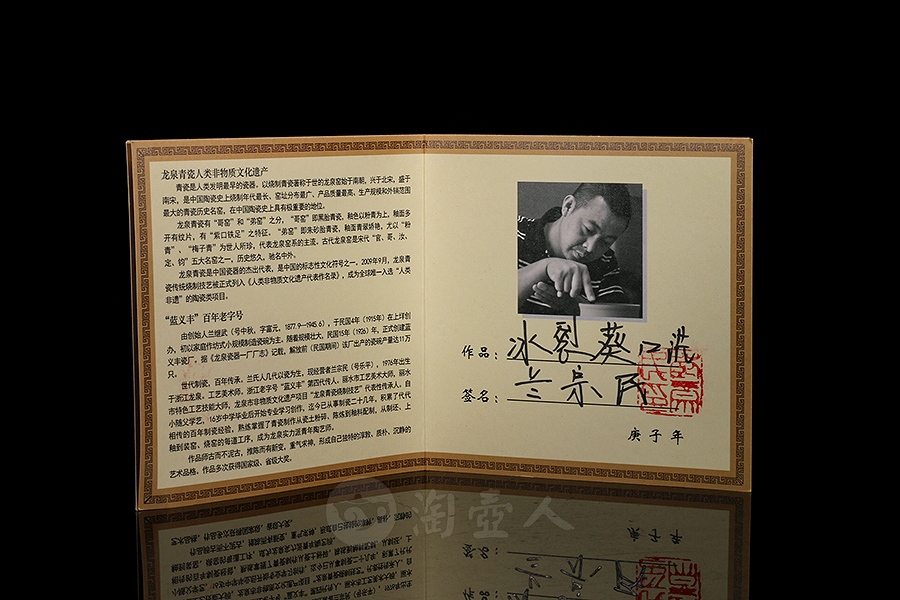 龙泉青瓷人类非物质文化遗产
青瓷是人类发明最早的瓷器。以烧制青瓷著称于世的龙泉窑始于南朝，兴于北宋，盛于
南宋，是中国陶瓷史上烧制年代最长、窑址分布最广、产品质量最高、生产规模和外销范围
最大的青瓷历史名窑，在中国陶瓷史上具有极重要的地位。
龙泉青瓷有“哥窑”和“弟窑”之分，“哥窑”即黑胎青瓷，釉色以粉青为上，釉面多
开有纹片，有“紫口铁足”之特征。“弟窑”即朱砂胎青瓷，釉面青翠娇艳，尤以“粉
青”、“梅子青”为世人所珍，代表龙泉窑系的主流，古代龙泉窑是宋代“官、哥、汝、
定、钧”五大名窑之一，历史悠久，驰名中外。
龙泉青瓷是中国瓷器的杰出代表，是中国的标志性文化符号之一。2009年9月，龙泉青
瓷传统烧制技艺被正式列入《人类非物质文化遗产代表作名录》，成为全球唯一入选“人类
非遗”的陶瓷类项目。
“蓝义丰”百年老字号
由创始人兰继武（号中秋，字富元，1877.9—1945.6），于民国4年（1915年）在上垟创
办，初以家庭作坊式小规模制造瓷碗为主。随着规模壮大，民国15年（1926）年，正式创建蓝
义丰瓷厂。据《龙泉瓷器一厂厂志》记载，解放前（民国期间）该厂出产的瓷碗产量达11万
只。
世代制瓷，百年传承，兰氏人几代以瓷为生，现经营者兰宗民（号乐平），1976年出生
于浙江龙泉，工艺美术师，浙江老字号“蓝义丰”第四代传人，丽水市工艺美术大师，丽水
市特色工艺技能大师，龙泉市非物质文化遗产项目“龙泉青瓷烧制技艺”代表性传承人。自
小随父学艺，16岁中学毕业后开始专业学习创作，迄今已从事制瓷二十几年，积累了代代
相传的百年制瓷经验，熟练掌握了青瓷制作从瓷土粉碎、陈炼到釉料配制，从制坯、上
釉到装窑、烧窑的每道工序，成为龙泉实力派青年陶艺师。
作品师古而不泥古，推陈而有新变，重气求神，形成自己独特的淳敦、质朴、沉静的
艺术品格。作品多次获得国家级、省级大奖。
作品：冰裂葵口洗
签名：兰宗民
庚子年
淘壶人